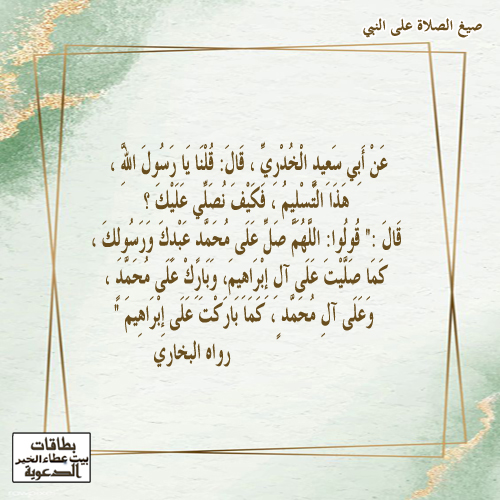 صيغ الصلاة على النبي
عَنْ أَبِي سَعِيدٍ الْخُدْرِيِّ ، قَالَ: قُلْنَا يَا رَسُولَ اللَّهِ ،
هَذَا التَّسْلِيمُ ، فَكَيْفَ نُصَلِّي عَلَيْكَ ؟
قَالَ :" قُولُوا: اللَّهُمَّ صَلِّ عَلَى مُحَمَّدٍ عَبْدِكَ وَرَسُولِكَ ،
كَمَا صَلَّيْتَ عَلَى آلِ إِبْرَاهِيمَ، وَبَارِكْ عَلَى مُحَمَّدٍ ،
وَعَلَى آلِ مُحَمَّدٍ ، كَمَا بَارَكْتَ عَلَى إِبْرَاهِيمَ "
رواه البخاري
بطاقات
بيت عطاء الخير
الدعوية